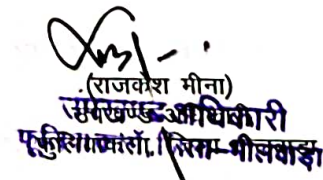 (राजकेश मीना)
उपखण्ड अधिकारी
जिला-भीलवाड़ा